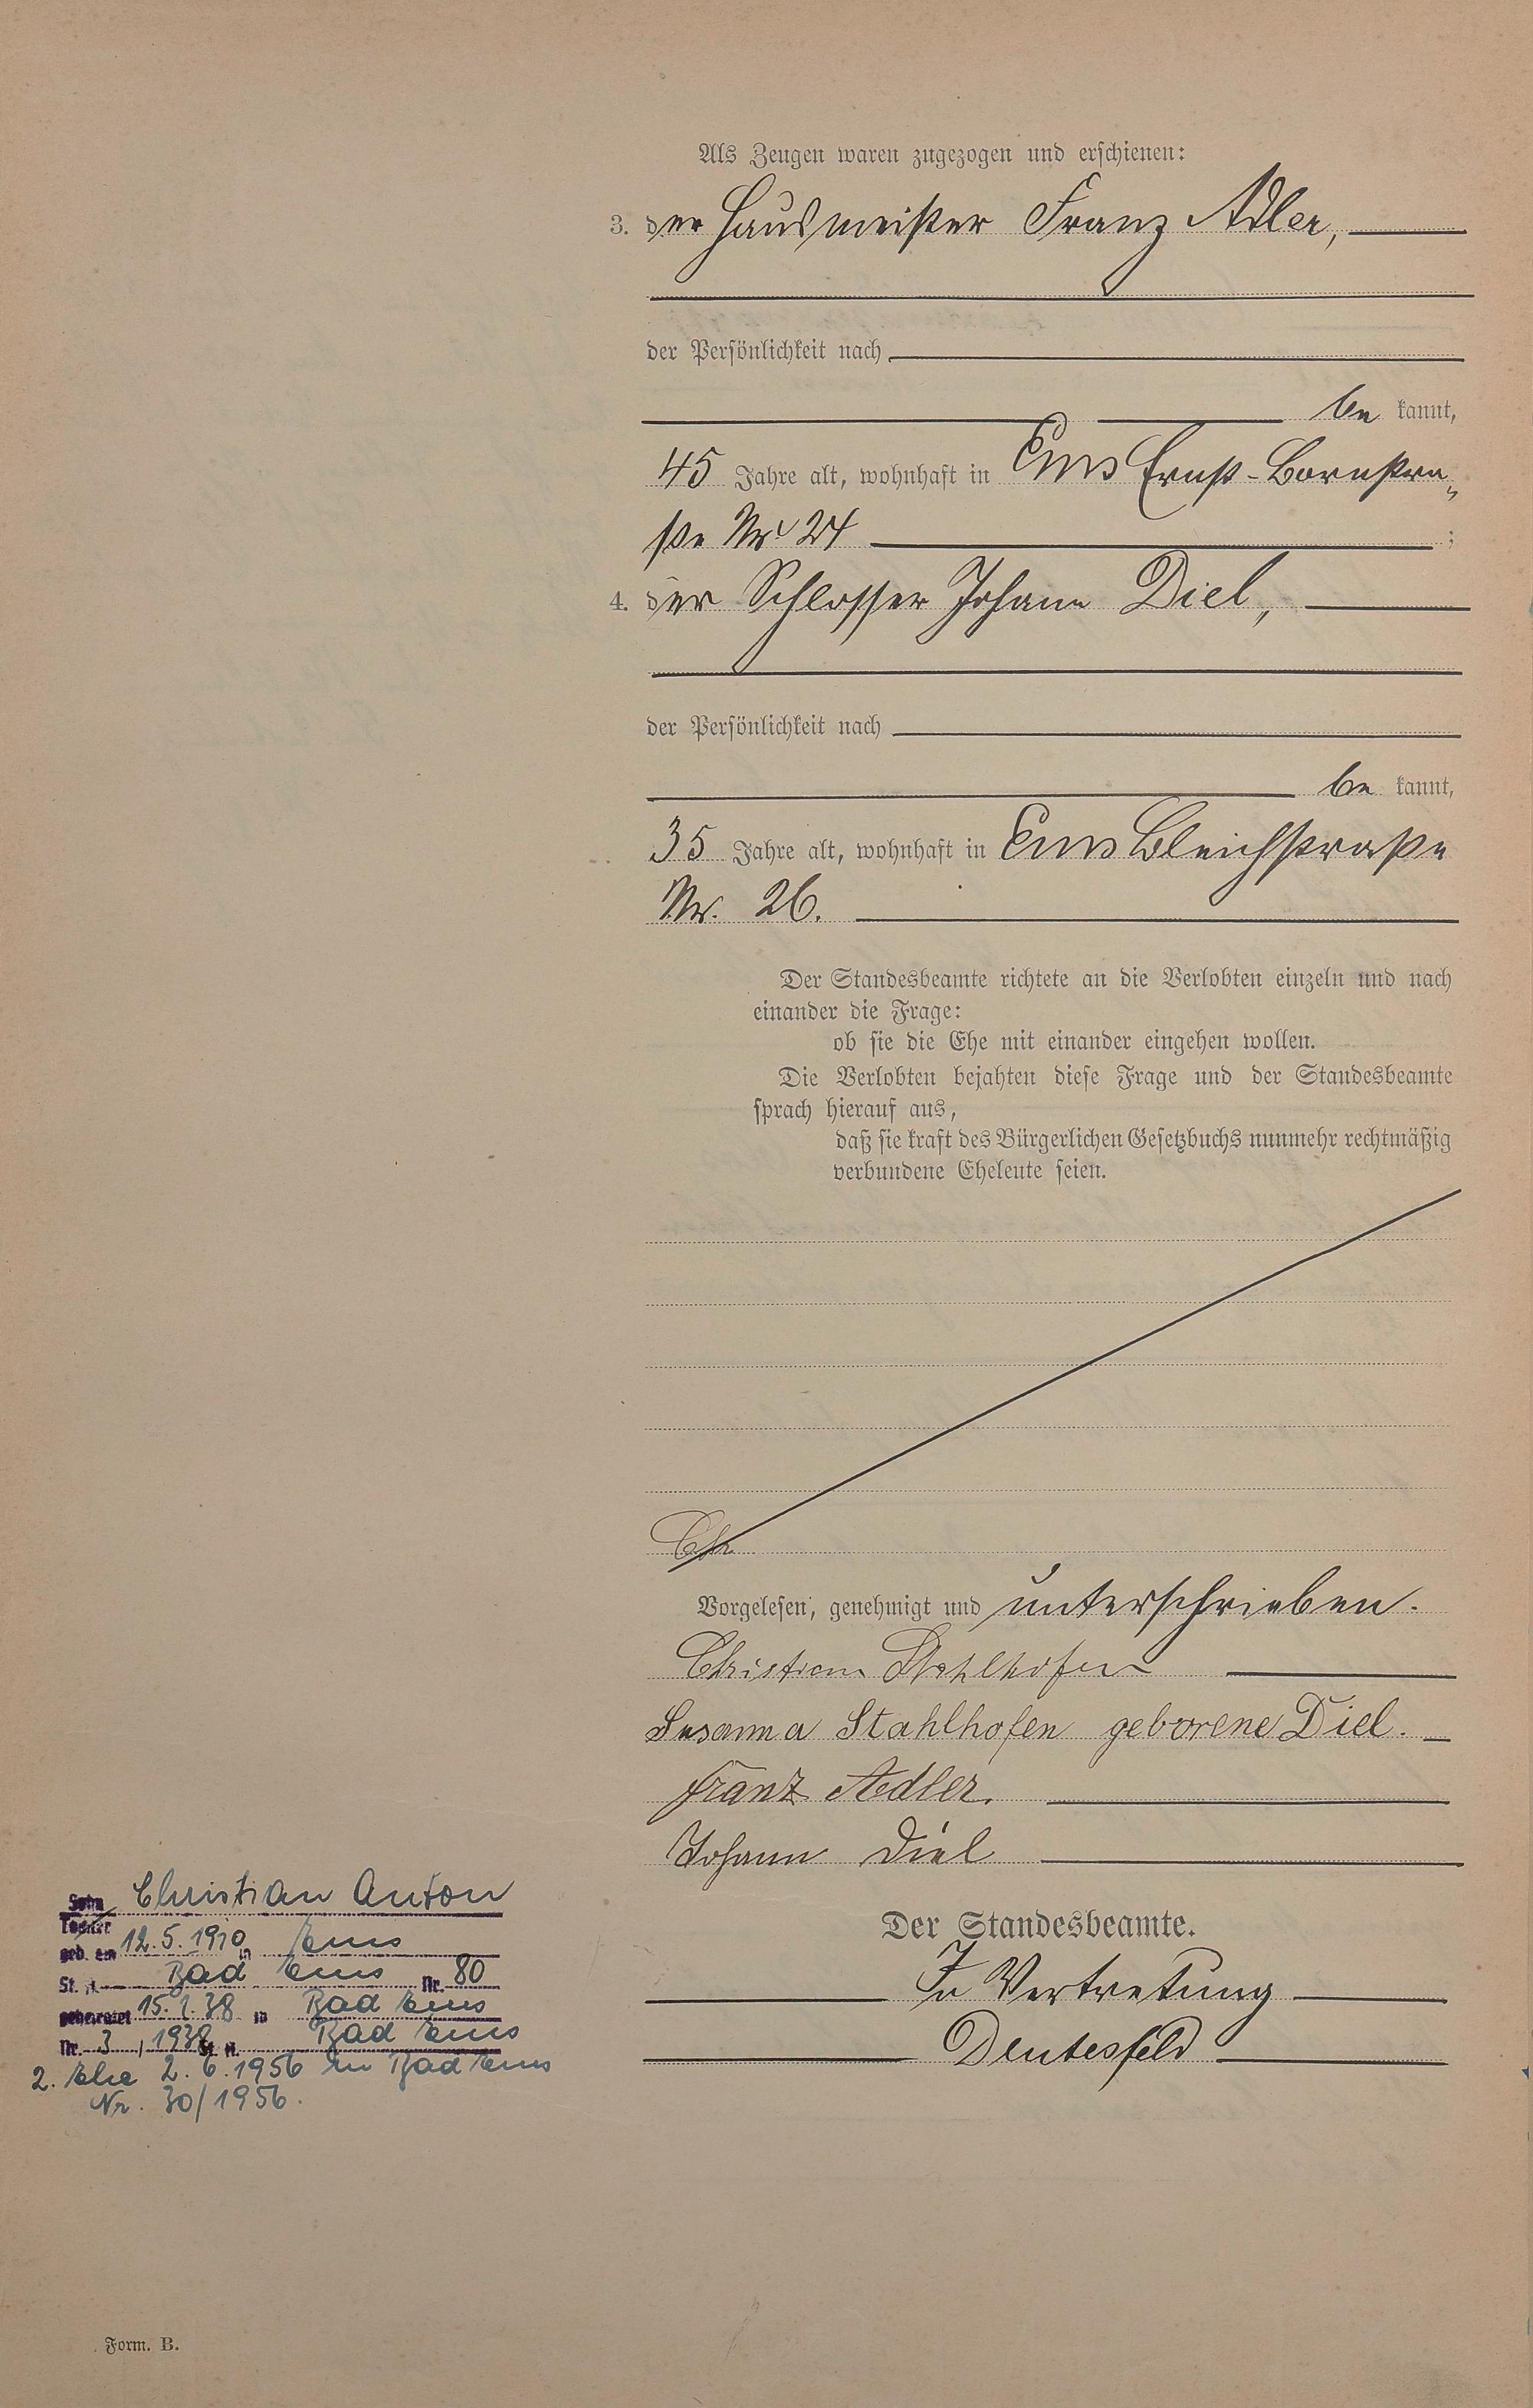 Als Zeugen waren zugezogen und erschienen:
3. der Hausmeister Franz Adler,
der Persönlichkeit nach
be kannt,
45 Jahre alt, wohnhaft in Ems Ernst-Bornstra-
ße Nr. 24 ;
4. der Schlosser Johann Diel,
der Persönlichkeit nach
be kannt,
35 Jahre alt, wohnhaft in Ems Bleichstraße
Nr. 26.
Der Standesbeamte richtete an die Verlobten einzeln und nach
einander die Frage:
ob sie die Ehe mit einander eingehen wollen.
Die Verlobten bejahten diese Frage und der Standesbeamte
sprach hierauf aus,
daß sie kraft des Bürgerlichen Gesetzbuchs nunmehr rechtmäßig
verbundene Eheleute seien.
Chr
Vorgelesen, genehmigt und unterschrieben.
Christian Stahlhofen
Susanna Stahlhofen geborene Diel.
Franz Adler.
Johann Diel
Der Standesbeamte.
In Vertretung
Deutesfeld
Sohn Christian Anton
Tochter
geb. am 12.5.1910 in Ems
St. A. Bad Ems Nr. 80
geheiratet 15.1.38 in Bad Ems
Nr. 3, 1938 St. A. Bad Ems
2. Ehe 2.6.1956 in Bad Ems
Nr. 30/1956.
Form. B.